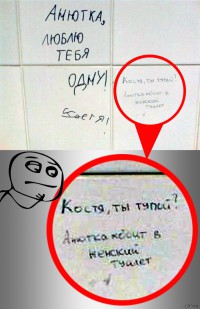 Анютка,
люблю
тебя
одну!
Костя!
Костя, ты тупой?
Анютка ходит в
женский
туалет
Костя, ты тупой?
Анютка ходит в
женский
туалет